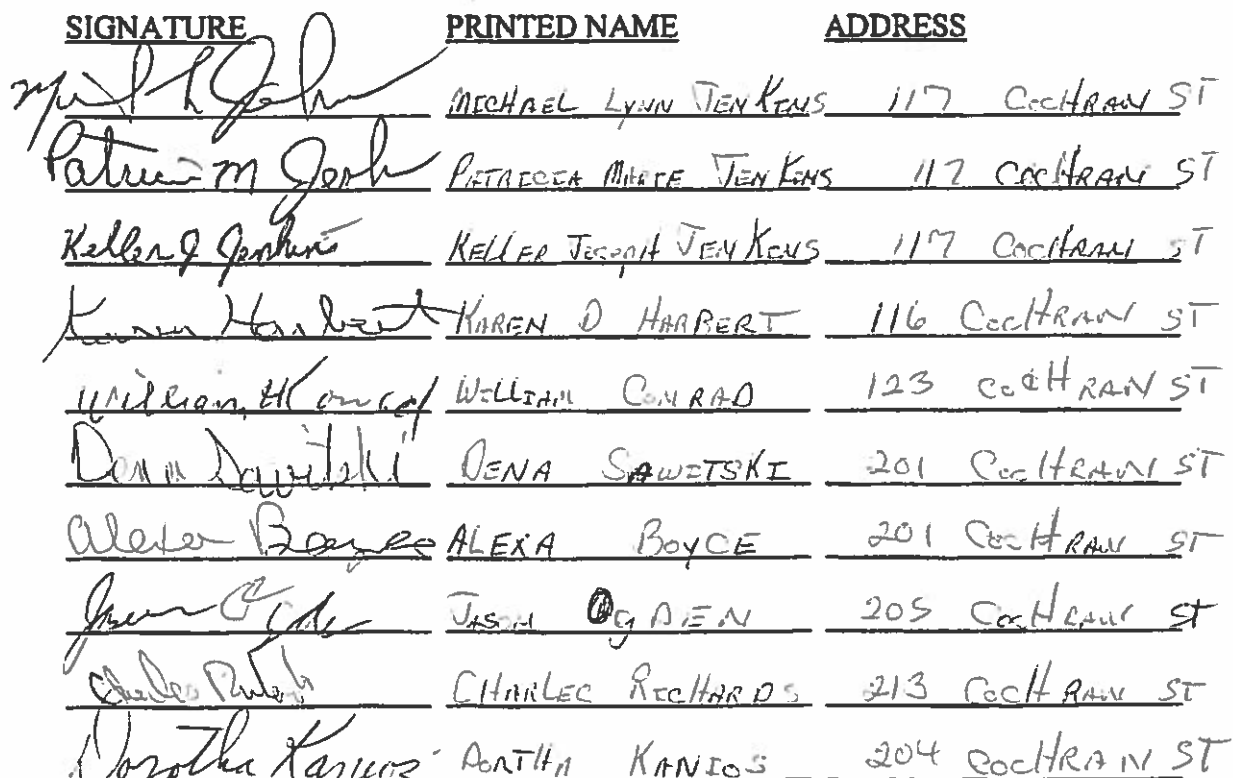 SIGNATURE PRINTED NAME ADDRESS
MICHAEL LYNN JENKINS 117 COCHRAN ST
Patricia M PATRICIA MARIE JENKINS 117 COCHRAN ST
Keller J Jenkins KELLER JOSEPH JENKINS 117 COCHRAN ST
Karen Harbert KAREN D HARBERT 116 COCHRAN ST
William H Conrad WILLIAM CONRAD 123 COCHRAN ST
Dena Sawitski DENA SAWITSKI 201 COCHRAN ST
Alexa Boyce ALEXA BOYCE 201 COCHRAN ST
JASON OgDEN 205 COCHRAN ST
Charles CHARLES RICHARDS 213 COCHRAN ST
Dorotha Kanios DORTHA KANIOS 204 COCHRAN ST